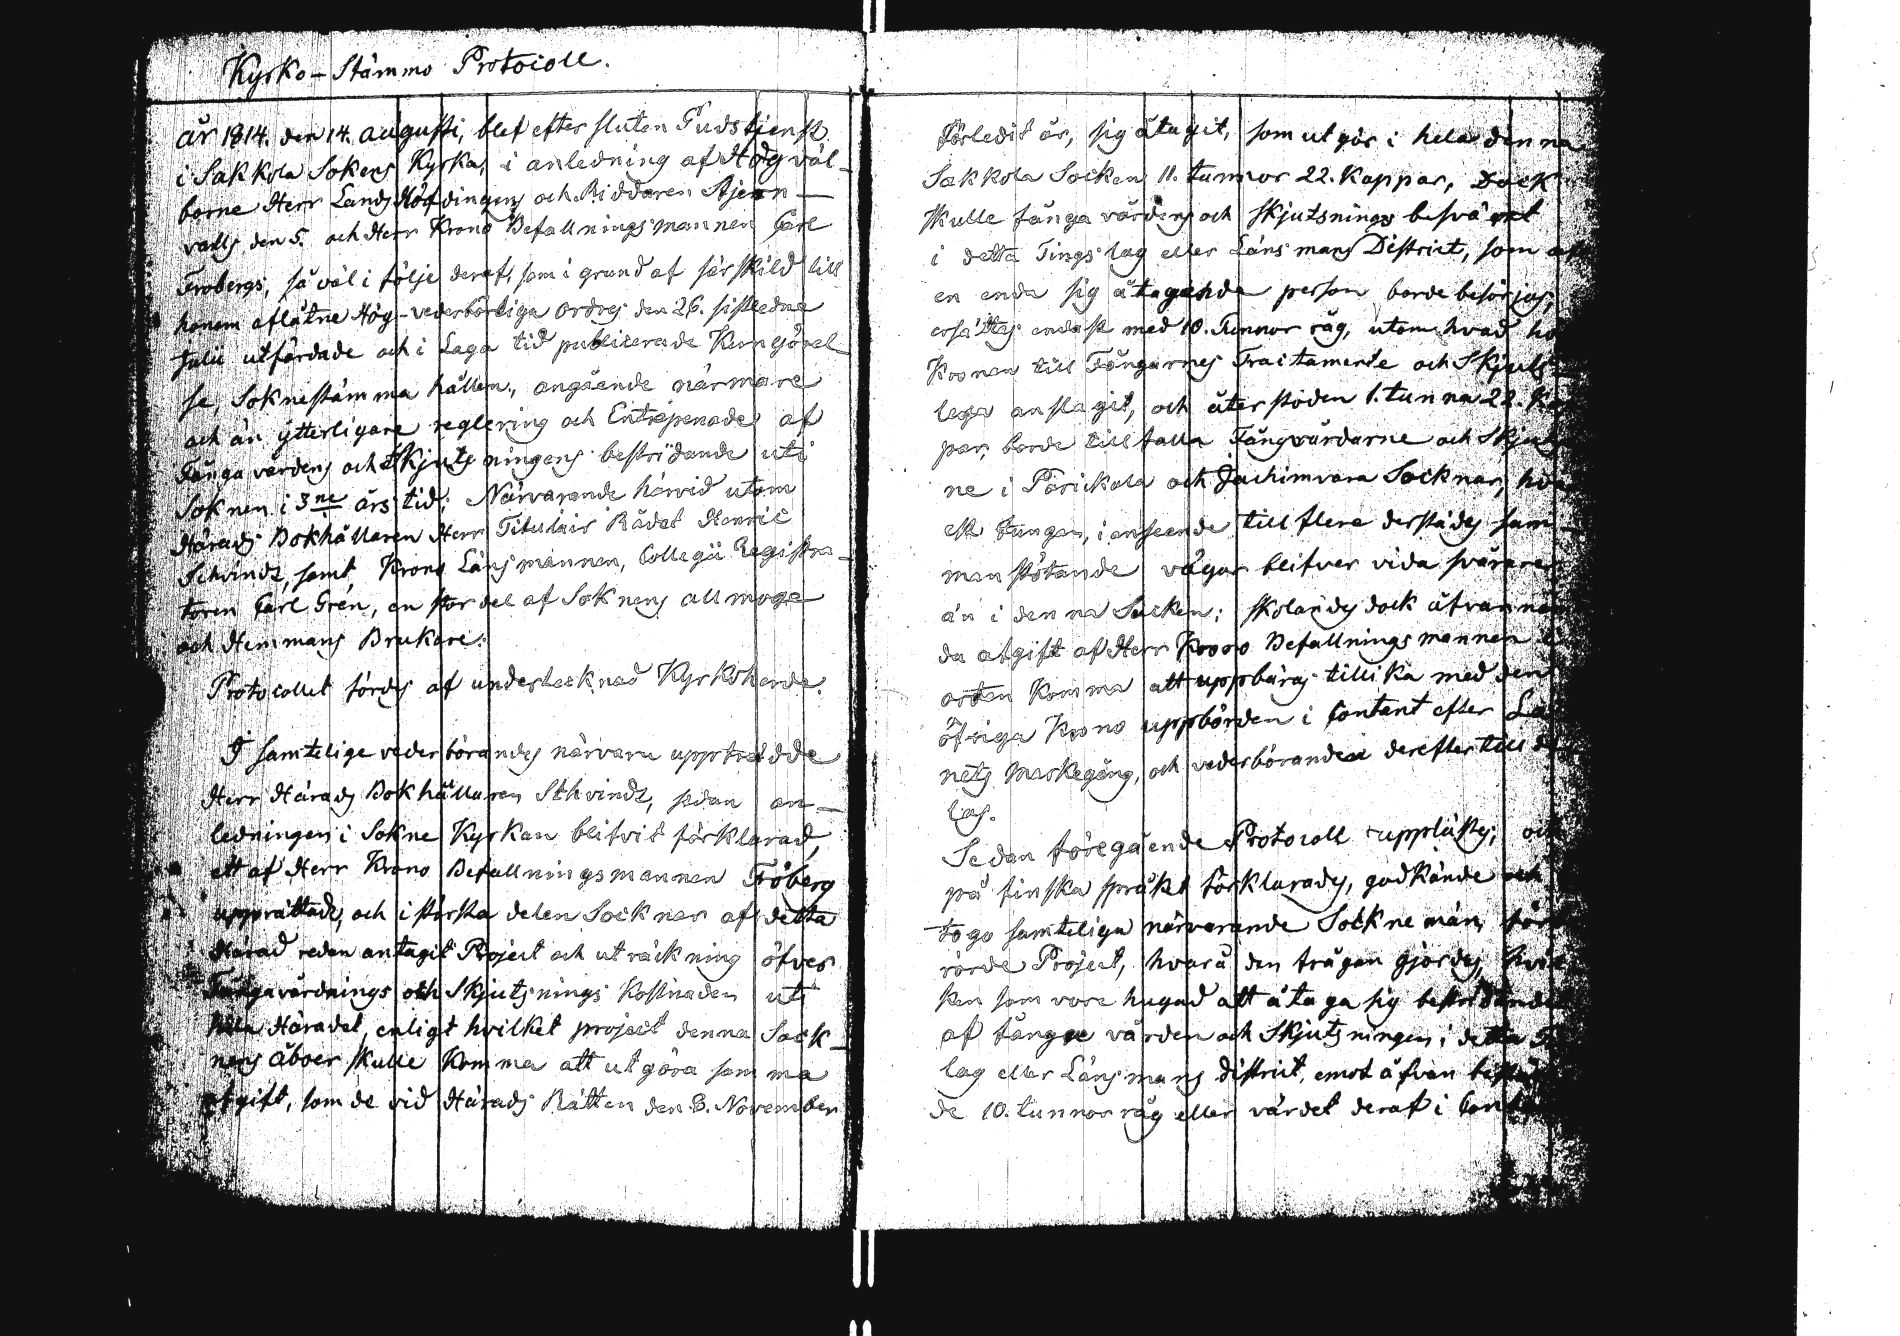 Kyrko-Stämmo Protocoll.
år 1814. den 14. augusti, blef efter sluten Gudstjenst
i Sakkola Sokens Kyrka, i anledning af Högväl-
borne Herr Landshöfdingens och Riddaren Stjern-
valls den 5. och Herr Krono Befallningsmannen Carl
Frobergs, så väl i följe deraf, som i grund af särskild till
honom aflåtne Hög-vederbörliga ordres den 26. sistledne
Julii utfärdade och i Laga tid publicerade Kungörel
se, Soknestämma hållen, angående närmare
och än ytterligare reglering och Entrepenade af
Fånga vårdens och Skjutsningens bestridande uti
Soknen i 3ne års tid; Närvarande härvid utom
Härads Bokhållaren Herr Titulair Rådet Henric
Schvindt, samt Krono Länsmannen, Collegii Registra-
toren Carl Grén, en stor del af Soknens allmoge
och Hemmans Brukare:
Protocollet fördes af undertecknad Kyrkoherde.
I samtelige vederbörandes närvaru uppträdde
Herr Härads Bokhållaren Schvindt, sedan an-
ledningen i Sokne Kyrkan blifvit förklarad,
ett af Herr Krono Befallningsmannen Fröberg
upprättade, och i största delen Socknar af detta
Härad redan antagit Project och uträckning öfver
Fångavårdnings och Skjutsnings Kostnaden uti
hela Häradet, enligt hvilket project denna Sock-
nens åboer skulle komma att utgöra samma
afgift, som de vid Härads Rätten den 3. November
förledit år, sig åtagit, som utgör i hela denna
Sakkola Socken 11. tunnor 22. Kappar, Dock
skulle fånga vårdens och skjutsnings besväret
i detta Tingslag eller Länsmans District, som af
en enda sig åtagande person borde besörjas,
ersättas endast med 10. Tunnor råg, utom hvad hö
Kronan till Fångarnes Traitamente och Skjuts-
lega anslagit, och återstoden 1. tunna 22. Kap
par, borde tillfalla Fångvårdarne och Skjuts
ne i Pärickala och Jachimvara Socknar, hva
est tungan, i anseende till flere derstädes sam-
manstötande vägar blifver vida svårare
än i denna Socken; skolandes dock äfvannäm
da afgift af Herr Krono Befallningsmannen i
orten komma att uppbäras tillika med den
öfriga Krono uppbörden i Contant efter Lä
nets Markegång, och vederbörande derefter till de
las.
Sedan föregående Protocoll upplästes, och
på finska språket förklarades, godkände och
togo samteliga närvarande Socknemän, före
rörde Project, hvarå den frågan gjordes, hvil
ken som vore hugad att åtaga sig bestridandet
af fånge vården och Skjutsningen i detta Ti
lag eller Länsmans district, emot äfvan bestäm
de 10. tunnor råg eller värdet deraf i Cont